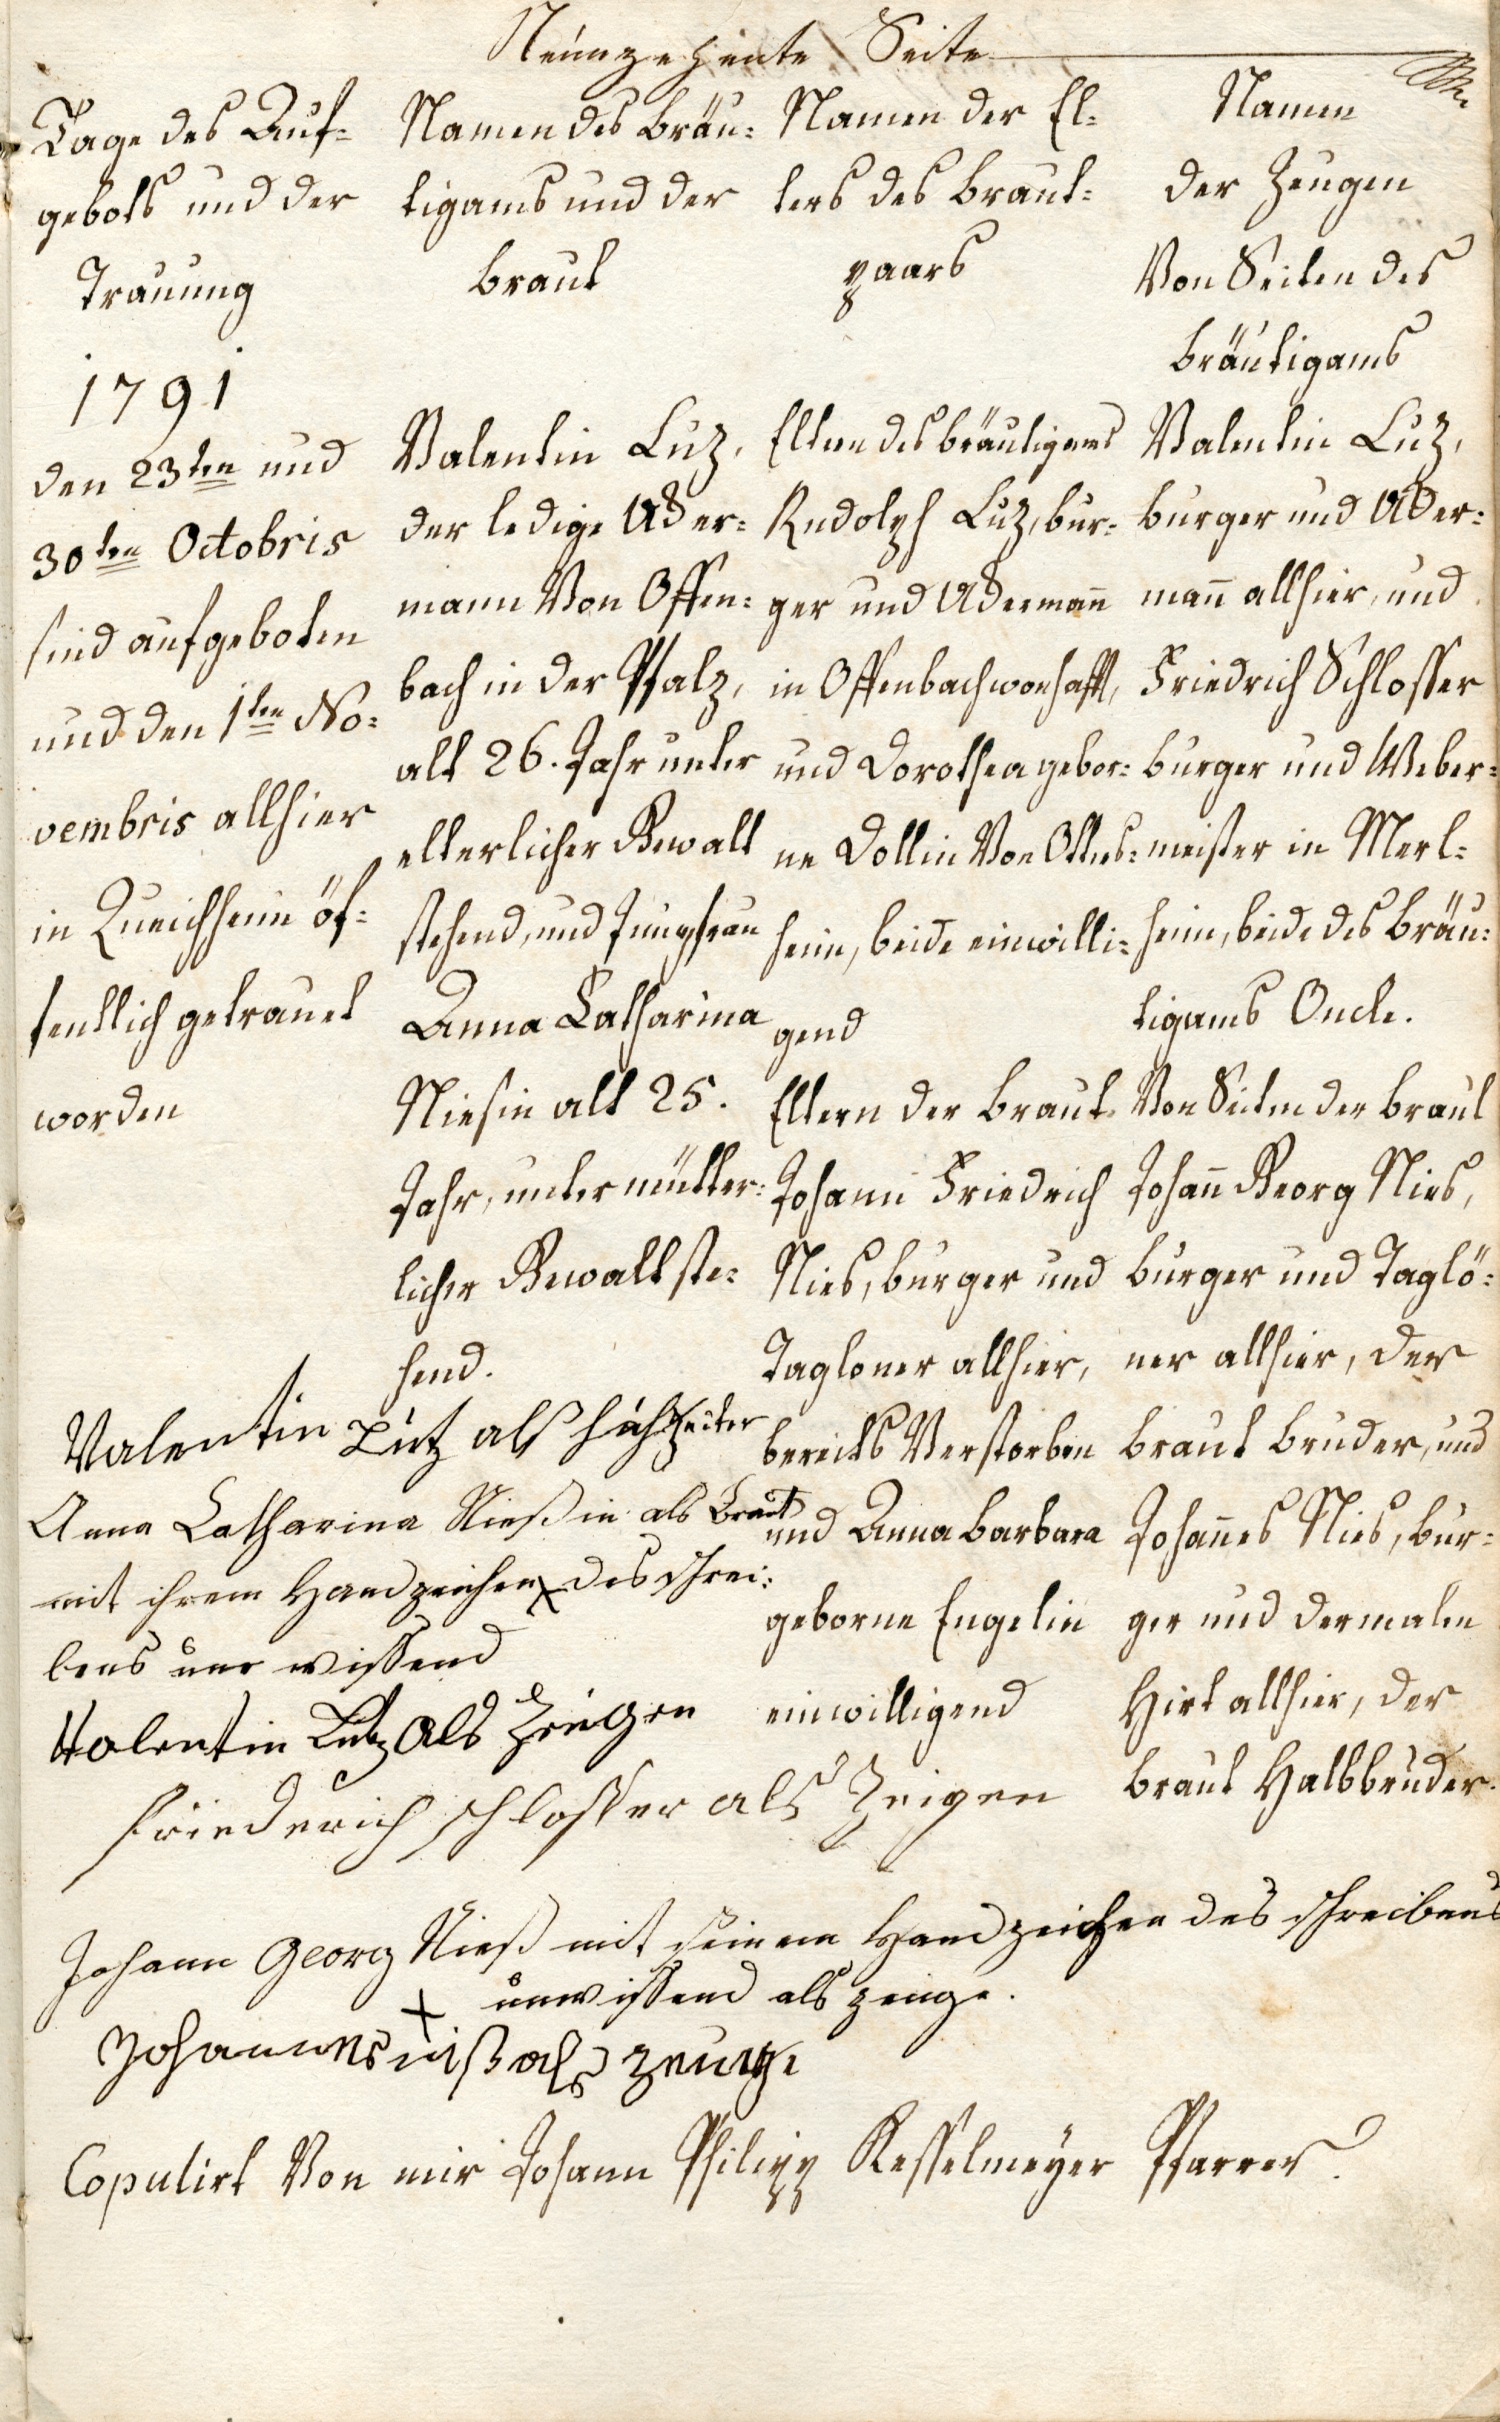 Neunzehente Seite
Tage des Auf=
gebots und der
Trauung
1791
den 23ten und
30ten Octobris
sind aufgeboten
und den 1ten No=
vembris allhier
in Queichheim öf=
fentlich getrauet
worden
Namen des Bräu=
tigams und der
Braut
Valentin Luz,
der ledige Acker=
mann Von Offen=
bach in der Pfalz,
alt 26. Jahr unter
elterlicher Gewalt
stehend, und Jungfrau
Anna Catharina
Niesin alt 25.
Jahr, unter mütter=
licher Gewalt ste=
hend.
Namen der El=
tern des Braut=
paars
Eltern des Bräutigams
Rudolph Luz, bur=
ger und Ackermann̄
in Offenbach wonhafft,
und Dorothea gebor=
ne Dollin Von Otters=
heim, beide einwilli=
gend
Eltern der Braut
Johann Friedrich
Nies, burger und
Tagloner allhier,
bereits Verstorben
und Anna Barbara
geborne Engelin
einwilligend
Namen
der Zeugen
Von Seiten des
Bräutigams
Valentin Luz,
burger und Acker=
man̄ allhier, und
Friedrich Schlosser
burger und Weber=
meister in Merl=
heim, beide des Bräu=
tigams Oncle.
Von Seiten der Braut
Johan̄ Georg Nies,
burger und Taglö=
ner allhier, der
Braut Bruder, und
Johan̄es Nies, bur=
ger und dermalen
Hirt allhier, der
Braut Halbbruder.
Valentin Lutz als hochzeiter
Anna Catharina Nießin als Braut
mit ihrem Handzeichen x des schrei=
bens unwissend
Valentin Lutz als Zeugen
Friederich schlosser als Zeigen
Johann Georg Nieß mit seinem Handzeichen des schreibens
x unwissend als zeuge.
Johannes niß als zeuge
Copulirt Von mir Johann Philipp Kesselmeyer Pfarrer.